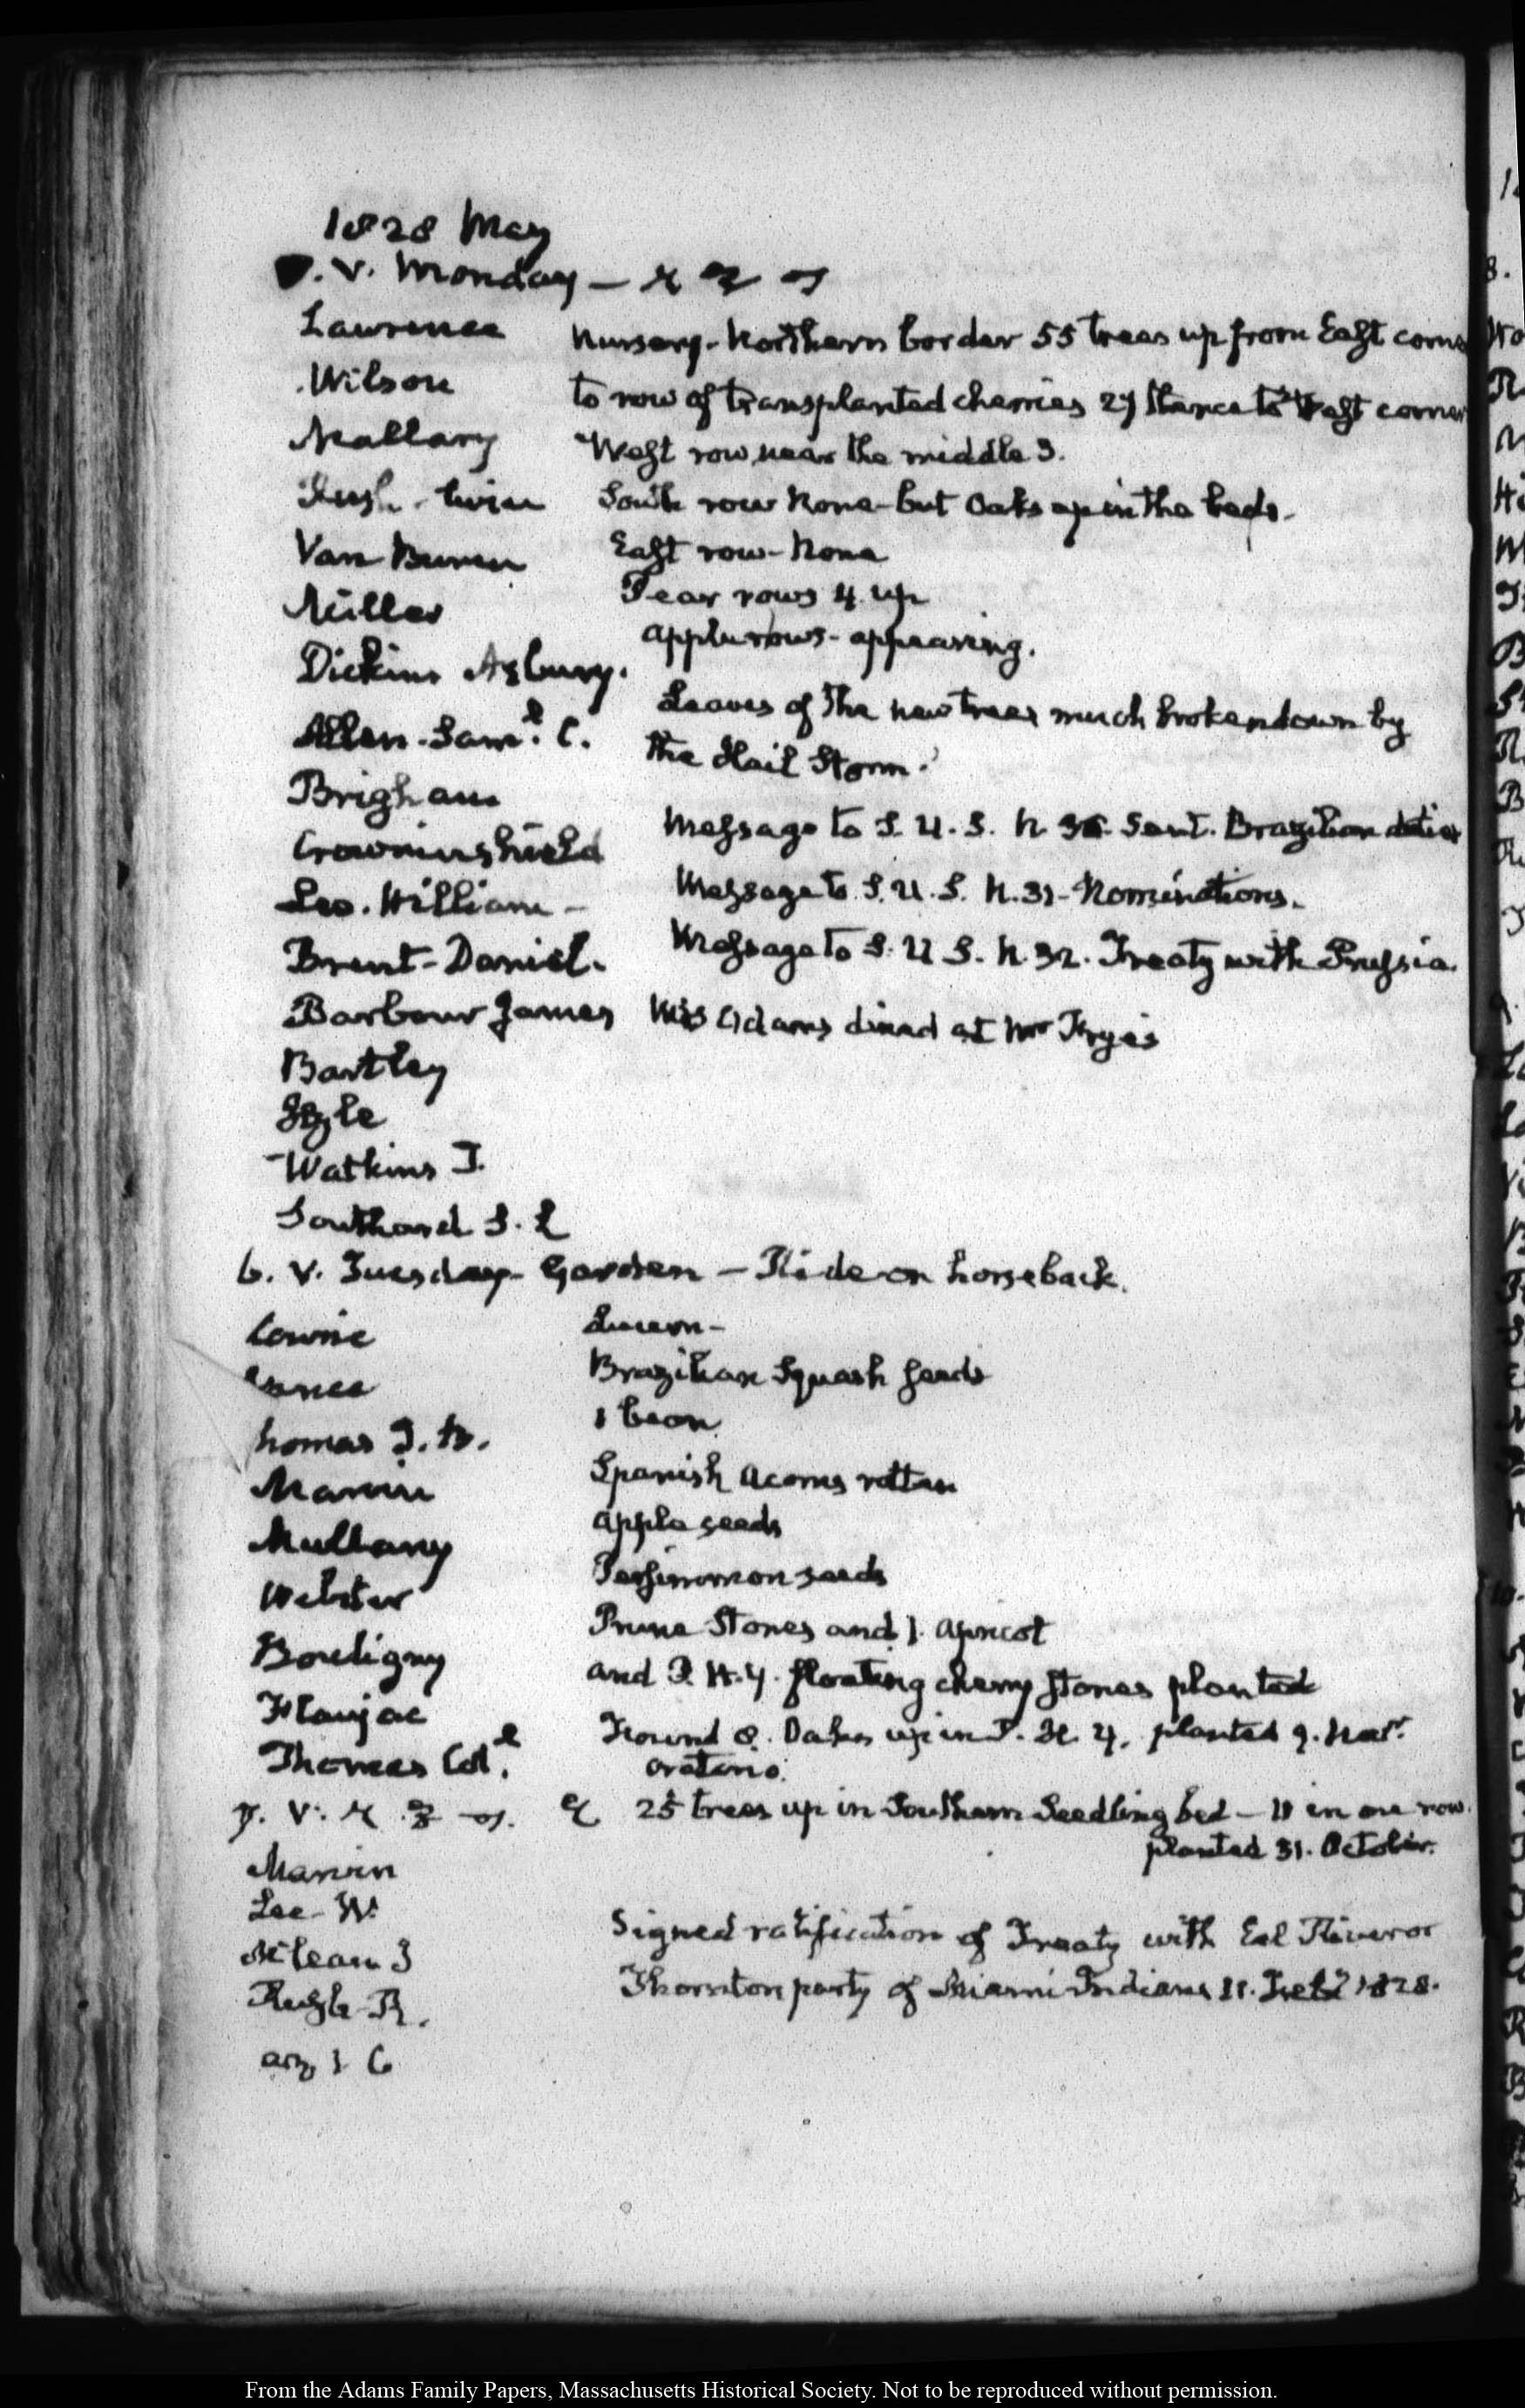 1828 May
V. Monday –
Lawrence
Nursery. Northern border 55 trees up from East corne
Wilson
to row of transplanted cherries 27 thence to West corner
Mallary
West row near the middle 3.
Rush twice
South row None – but Oaks up in the beds.
Van Buren
East row – None
Miller
Pear rows 4 up
Dickins Asbury.
apple rows – appearing.
Allen. Saml. C.
Leaves of the new trees much broken down by
the Hail Storm.
Brigham
Crowninshield
Message to S. U. S. N. 30. Sent. Brazilian duties
Lee. William –
Message to S. U. S. N. 31 – Nominations.
Brent – Daniel.
Message to S. U S. N. 32. Treaty with Prussia.
Barbour James
Mrs Adams dined at Mr Frye's
Bartley
Lyle
Watkins T.
Southard S. L
6. V. Tuesday – Garden – Ride on horseback.
Cowrie
Vance
Brazilian Squash seeds
homas J. B.
1 bean
Marvin
Spanish Acorns rotten
Mullany
apple seeds
Webster
Persimmon seeds
Bouligny
Prune Stones and 1. apricot
Flaujac
and P. H. 4. floating cherry stones planted
Thomas Coll.
Found 8. Oaks up in P. H. 4. planted 9. Novr.
7. V.
25 trees up in Southern Seedling bed – 11 in one row.
planted 31. October.
Marvin
Lee – W.
Signed ratification of Treaty with Eel River or
McLean J
Thornton party of Miami Indians 11. Feby 1828.
Rush – R.
6
From the Adams Family Papers, Massachusetts Historical Society. Not to be reproduced without permission.